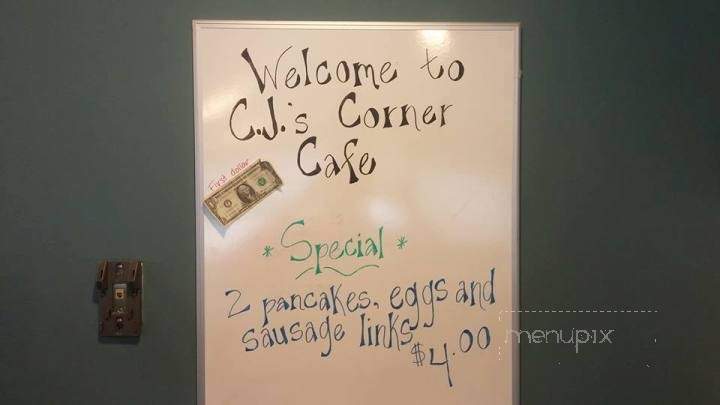 Welcome to
C.J.'s Corner
Cafe
First dollar
* Special *
2 pancakes, eggs and
sausage links
$4.00
menupix